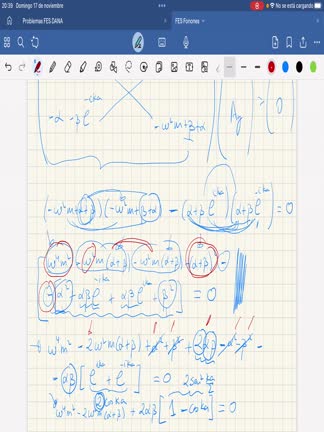 20:39 Domingo 17 de noviembre
No se está cargando
Problemas FES DANA
FES Fonones
-α - βe^{-ika}
-w²m + β + α
A_y
= (0
(-w²m + α + β)(-w²m + β + α) - (α + βe^{ika})(α + βe^{-ika}) = 0
w⁴m² - w²m(α+β) - w²m(α+β) + (α+β)² -
- [α² + αβe^{-ika} + αβe^{ika} + β²] = 0
→ w⁴m² - 2w²m(α+β) + α² + β² + 2αβ - α² - β² -
- αβ[e^{ika} + e^{-ika}] = 0
2cos ka
w⁴m² - 2w²m(α+β) + 2αβ[1 - cos ka] = 0